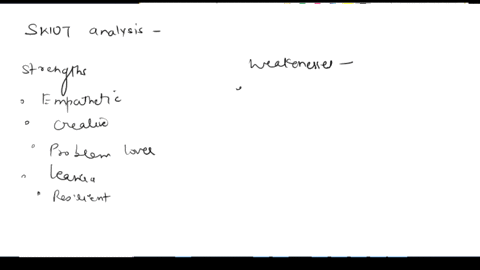 SWOT analysis -
Strengths
Weaknesses -
Empathetic
Creative
Problem lover
Resilient